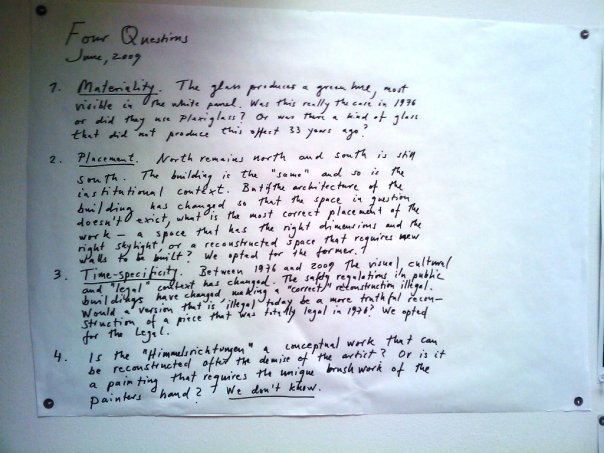 Four Questions
June, 2009
1. Materiality. The glass produces a green hue, most
visible in the white panel. Was this really the case in 1976
or did they use plaxiglass? Or was there a kind of glass
that did not produce this effect 33 years ago?
2. Placement. North remains north and south is still
south. The building is the "same" and so is the
institutional context. But if the architecture of the
building has changed so that the space in question
doesn't exist, what is the most correct placement of the
work – a space that has the right dimensions and the
right skylight, or a reconstructed space that requires new
walls to be built? We opted for the former.
3. Time-specificity. Between 1976 and 2009 the visual, cultural
and "legal" context has changed. The safety regulations in public
buildings have changed, making a "correct" reconstruction illegal.
Would a version that is illegal today be a more truthful recon-
struction of a piece that was totally legal in 1976? We opted
for the legal.
4. Is the "Himmelsrichtungen" a conceptual work that can
be reconstructed after the demise of the artist? Or is it
a painting that requires the unique brushwork of the
painters hand? We don't know.